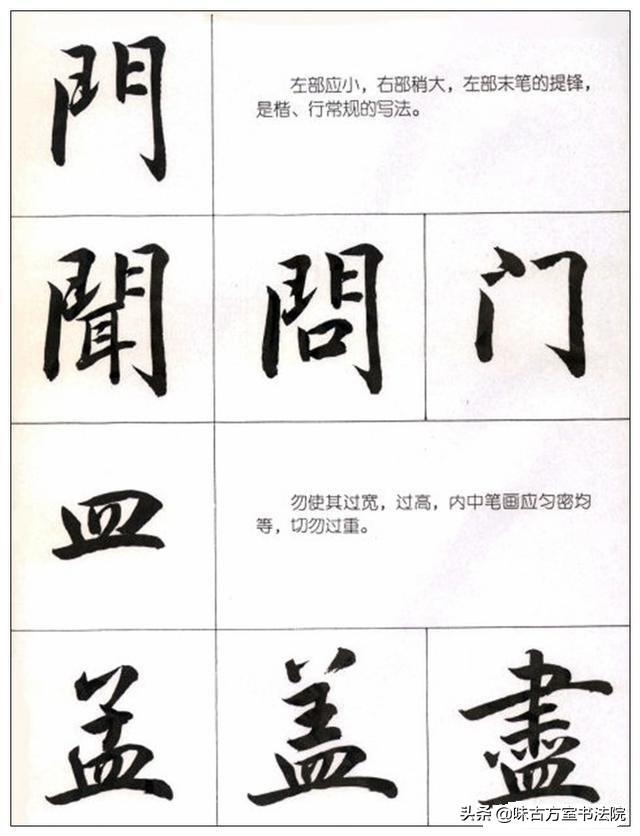 門
左部应小，右部稍大，左部末笔的提锋，
是楷、行常规的写法。
聞 問 门
皿
勿使其过宽，过高，内中笔画应匀密均
等，切勿过重。
孟 盖 盡
头条 @味古方室书法院